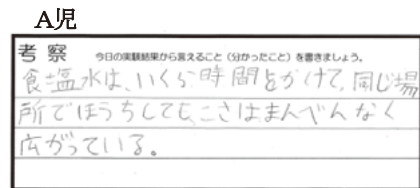 A児
考察 今日の実験結果から言えること（分かったこと）を書きましょう。
食塩水は、いくら時間をかけて、同じ場
所でほうちしても、こさはまんべんなく
広がっている。